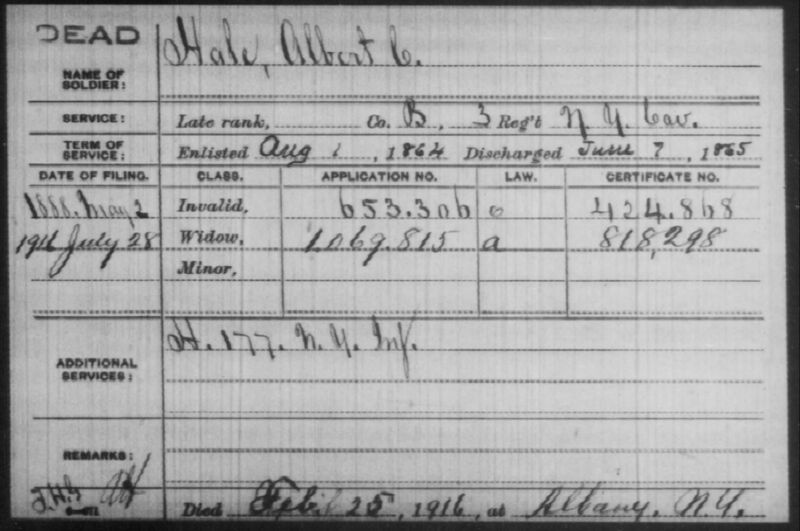 DEAD
Hale, Albert C.
NAME OF SOLDIER:
SERVICE: Late rank, Co. B, 3 Reg't N. Y. Cav.
TERM OF SERVICE: Enlisted Aug 1, 1864 Discharged June 7, 1865
DATE OF FILING. CLASS. APPLICATION NO. LAW. CERTIFICATE NO.
1888. May, 2 Invalid, 653.306 c 424.868
1916 July 28 Widow, 1069.815 a 818,298
Minor,
H. 177. N. Y. Inf.
ADDITIONAL SERVICES:
REMARKS:
Died Feb 25, 1916, at Albany, N.Y.